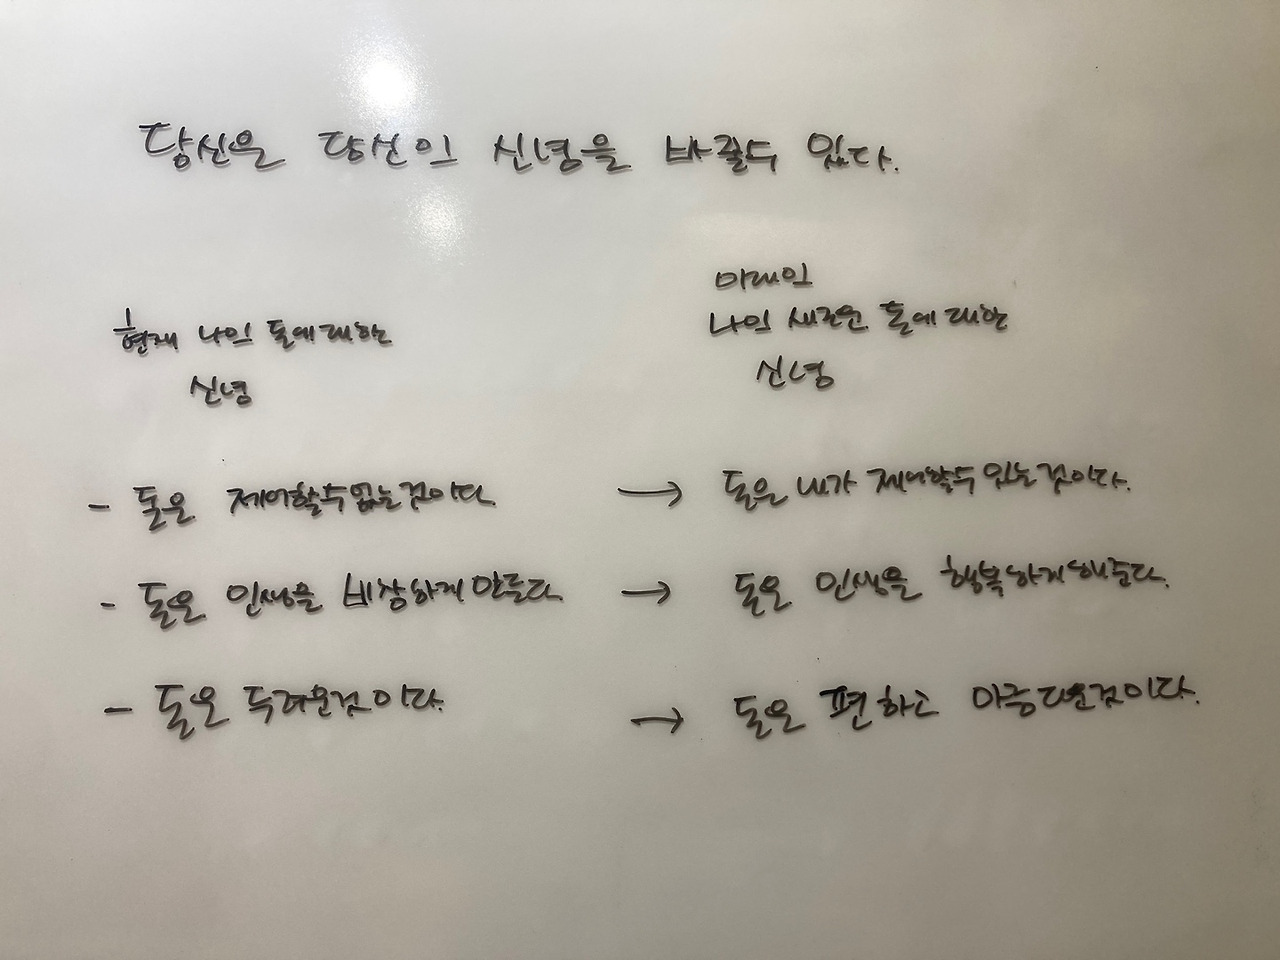 당신은 당신의 신념을 바꿀수 있다.
현재 나의 돈에 대한
신념
미래의
나의 새로운 돈에 대한
신념
- 돈은 제어할수 없는것이다 → 돈은 내가 제어할수 있는것이다.
- 돈은 인생을 비참하게 만든다 → 돈은 인생을 행복하게 해준다.
- 돈은 두려운것이다. → 돈은 편하고 아름다운것이다.